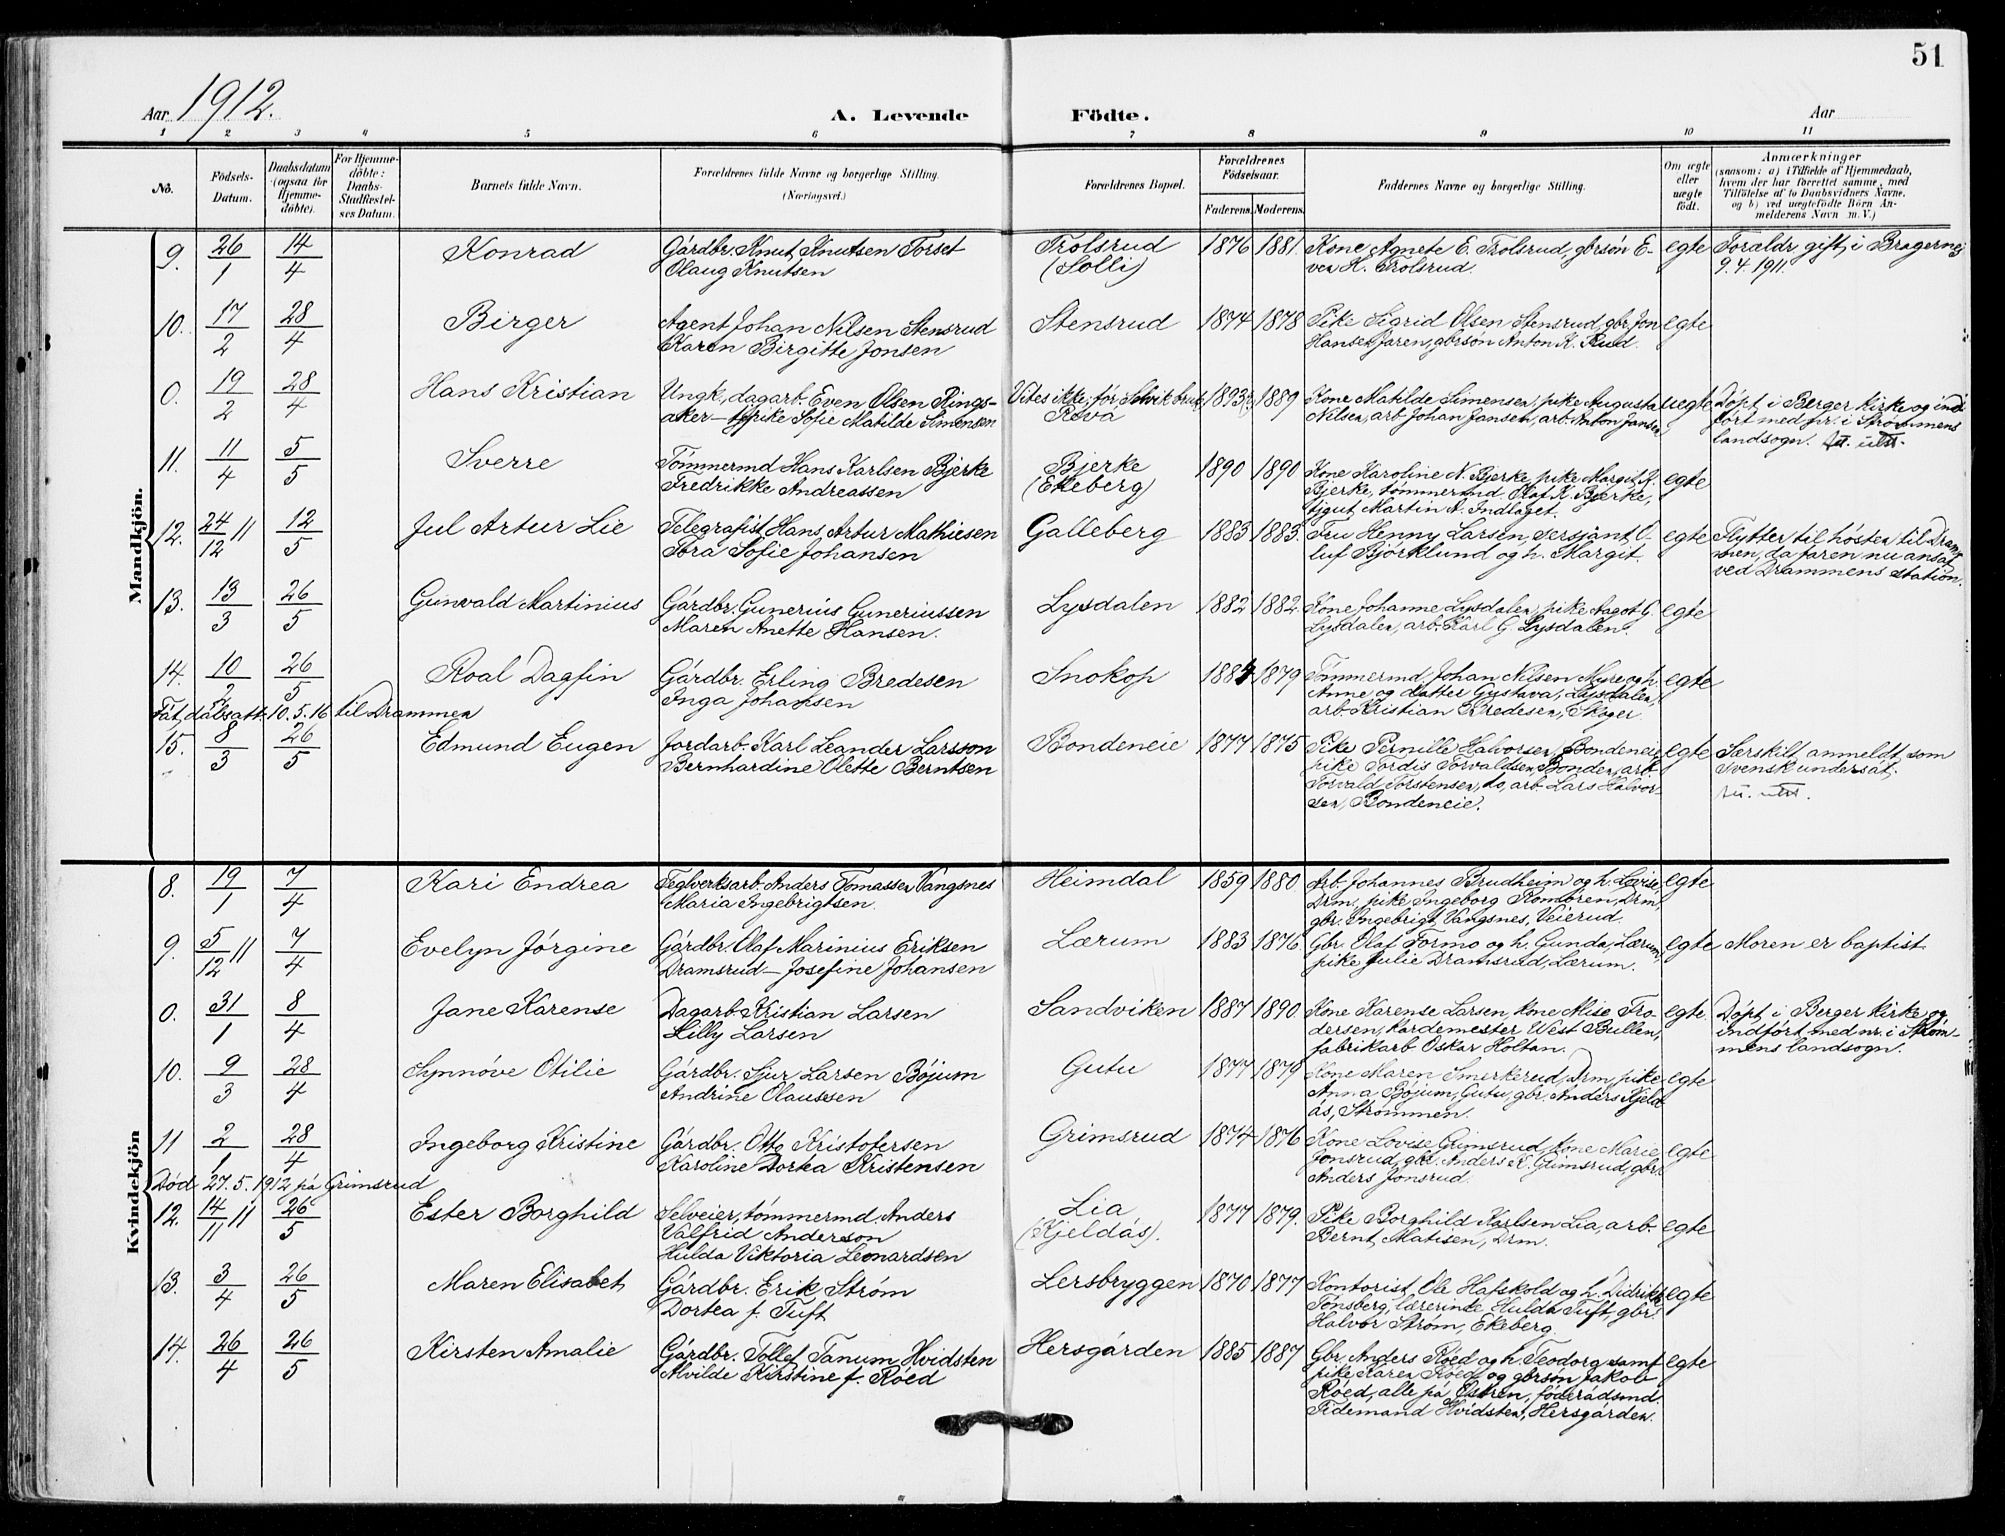 51
Aar 1912.
A. Levende Födte.
Aar
1 2 3 4 5 6 7 8 9 10 11
No. Födsels-Datum. Daabsdatum (ogsaa for Hjemme-døbte). For Hjemme-döbte: Daabs-Stadfæstel-ses Datum. Barnets fulde Navn. Forældrenes fulde Navne og borgerlige Stilling. (Næringsvei.) Forældrenes Bopæl. Forældrenes Födselsaar. Faderens. Moderens. Faddernes Navne og borgerlige Stilling. Om ægte eller uægte födt. Anmærkninger (saasom: a) i Tilfælde af Hjemmedaab, hvem der har forrettet samme, med Tilföielse af to Daabsvidners Navne, og b) ved uægtefödte Börn An-melderens Navn m. V.)
Mandkjön.
9. 26/1 14/4 Konrad Gårdbr. Knut Knutsen Torset Trolsrud 1876 1881. Kone Agnete E. Trolsrud, gbrsøn E- egte Forældr. gift i Bragernes
Olaug Knutsen (Solli) ven H. Trolsrud. 9.4.1911.
10. 17/2 28/4 Birger Agent Johan Nilsen Stensrud Stensrud 1874 1878 Pike Sigrid Olsen Stensrud, gbr. Jon egte
Karen Birgitte Jonsen Hansen Jaren, gbrsøn Anton K. Rud.
0. 19/2 28/4 Hans Kristian Ungk., dagarb. Even Olsen Rings- Vites ikke, før Selvik bruk 1893(?) 1889 Kone Matilde Simensen, pike Augusta uegte Døpt i Berger kirke og ind-
aker – pike Sofie Matilde Simensen Revå Nilsen, arb. Johan Jansen, arb. Anton Jansen ført med nr. i Strømmens
landsogn.
11. 11/4 5/5 Sverre Tømmermd Hans Karlsen Bjerke Bjerke 1890 1890 Kone Karoline N. Bjerke, pike Margit K. egte
Fredrikke Andreassen (Ekeberg) Bjerke, tømmermd. Olaf K. Bjerke,
tjgut Martin A. Indlaget.
12. 24/12 11 12/5 Jul Artur Lie Telegrafist Hans Artur Mathiesen Galleberg 1883 1883. Fru Henny Larsen, sersjant O- egte Flytter til høsten til Dram-
Tora Sofie Johansen luf Bjørklund og h. Margit. men, da faren nu ansat
ved Drammens station.
13. 13/3 26/5 Gunvald Martinius Gårdbr. Gunerius Guneriussen Lysdalen 1882 1882. Kone Johanne Lysdalen, pike Aagot G. egte
Maren Anette Hansen. Lysdalen, arb. Karl G. Lysdalen.
14. 10/2 26/5 Roal Dagfin Gårdbr. Erling Bredesen Snokop 1884 1879 Tømmermd. Johan Nilsen Myre og h. egte
Inga Johansen Anne og datter Gustava, Lysdalen,
Fåt dåbsatt. 10.5.16 til Drammen arb. Kristian Bredesen, Skoger.
15. 8/3 26/5 Edmund Eugen Jordarb. Karl Leander Larsson Bondeneie 1877 1875 Pike Pernille Halvorsen, Bondeneie, egte Særskilt anmeldt som
Bernhardine Olette Berntsen pike Tordis Torvaldsen, Bonden, arb. svensk undersåt.
Torvald Torstensen, do, arb. Lars Halvor-
sen, Bondeneie.
Kvindekjön
8. 19/1 7/4 Kari Endrea Teglverksarb. Anders Tomassen Vangsnes Heimdal 1859 1880 Arb. Johannes Brudheim og h. Lovise, egte
Maria Ingebrigtsen. Drm., pike Ingeborg Romören, Drm,
gbr. Ingebrigt Vangsnes, Veierud.
9. 5/12 11 7/4 Evelyn Jørgine Gårdbr. Olaf Marinius Eriksen Lærum 1883 1876. Gbr. Olaf Formo og h. Gunda, Lærum, egte Moren er baptist.
Dramsrud – Josefine Johansen pike Julie Dramsrud, Lærum.
0. 31/1 8/4 Jane Karense Dagarb. Kristian Larsen Sandviken 1887 1890. Kone Karense Larsen, kone Mise Tro- egte. Døpt i Berger kirke og
Lilly Larsen dersen, kardemester West Bullen, indført med nr. i Strøm-
fabrikarb Oskar Holtan. mens landsogn.
10. 9/3 28/4 Synnøve Otilie Gårdbr. Sjur Larsen Bøjum Gutu 1877 1879 Kone Maren Smerkerud, Drm, pike egte
Andrine Olaussen Anna Bøjum, Gutu, gbr. Anders Kjeld-
ås, Strømmen.
11 2/1 28/4 Ingeborg Kristine Gårdbr. Otto Kristofersen Grimsrud 1874 1876 Kone Lovise Grimsrud, kone Marie egte
Karoline Dortea Kristensen Jonsrud, gbr. Anders K. Grimsrud, gbr.
Død 27.5.1912 på Grimsrud Anders Jonsrud.
12. 14/11 11 26/5 Ester Borghild Selveier, tømmermd. Anders Lia 1877 1879. Pike Borghild Karlsen Lia, arb. egte
Valfrid Anderson (Kjeldås). Bernt Matisen, Drm.
Hulda Viktoria Leonardsen
13. 3/4 26/5 Maren Elisabet Gårdbr. Erik Strøm Lersbryggen 1870 1877 Kontorist Ole Hafskold og h. Didrikke egte
Dortea f. Tuft Tønsberg, lærerinde Hulda Tuft, gbr.
Halvor Strøm, Ekeberg.
14. 26/4 26/5 Kirsten Amalie Gårdbr. Tollef Tanum Hvidsten Hersgården 1885 1887 Gbr. Anders Røed og h. Teodora samt egte
Alvilde Kirstine f. Røed pike Karen Røed og gbrsøn Jakob
Røed, alle på Østren, føderådsmd.
Tidemand Hvidsten, Hersgården.